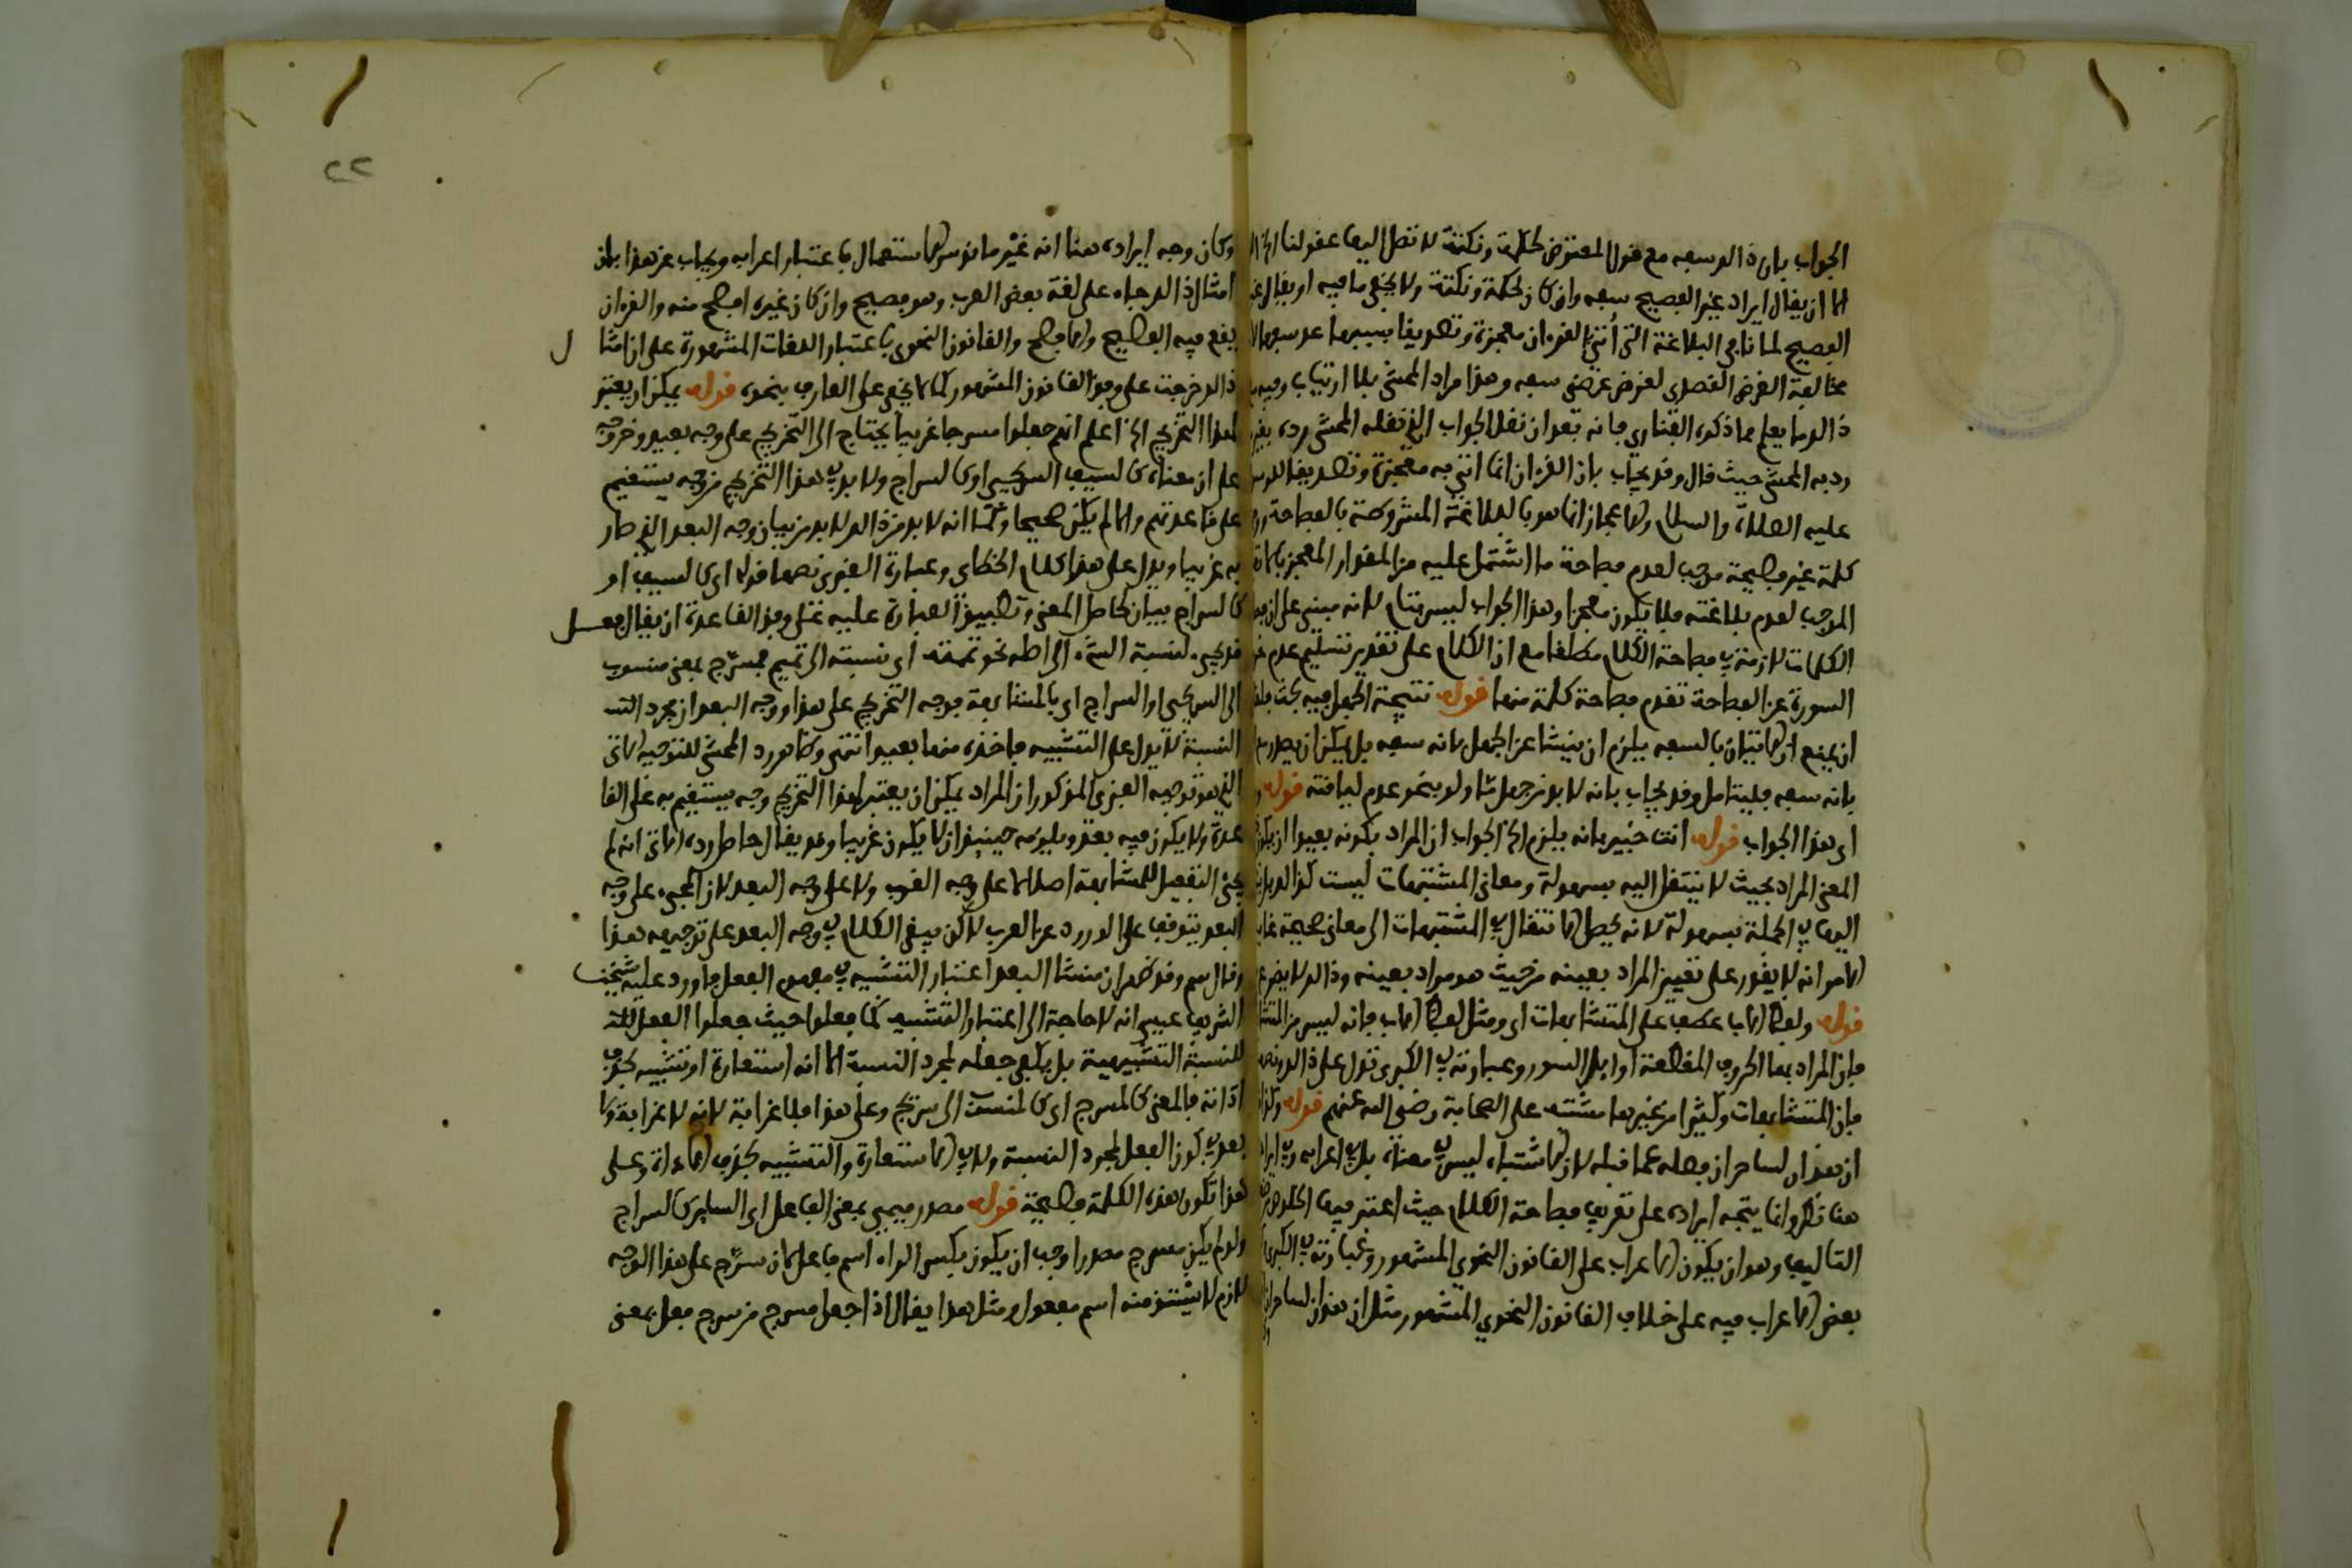 الجواب بان ذالك سفه مع قول المعترض لحكمة ونكتة لا تصل اليها عقولنا الخ
الا ان يقال ايراد غير الفصيح سفه وان كان لحكمة ونكتة ولا يخفى ما فيه او يقال
الفصيح لمنافاته البلاغة التي أتى القرءان معجزة وتصديقا بسببها عد سفها
مخالفة الغرض القصدى لغرض عرضى سفه وهذا مراد المحشى بلا ارتياب وفيه
ذالك ما يعلم مما ذكره الفناري فانه بعد ان نقل الجواب الذي نقله المحشى رده
رد به المحشى حيث قال وقد يجاب بان القرءان انما اتى به معجزة وتصديقا
عليه الصلاة والسلام والاعجاز انما هو بالبلاغة المشروطة بالفصاحة
كلمة غير فصيحة موجب لعدم فصاحة ما اشتمل عليه من المقدار المعجز
الموجب لعدم بلاغته فلا يكون معجزا وهذا الجواب ليس بتام لانه مبنى على ان
الكلمات لازمة في فصاحة الكلام مطلقا مع ان الكلام على تقدير تسليم عدم
السورة عن الفصاحة تقدم فصاحة كلمة منها قوله نتيجة الجهل فيه بحث
ان يمنع ان الاتيان بالسفه يلزم ان ينشا عن الجهل بانه سفه بل يمكن ان يصدر
بانه سفه فليتامل وقد يجاب بانه لا بد من جهل ما ولو بنحو عدم لياقته قوله
اى هذا الجواب قوله انت خبير بانه يلزم الخ الجواب ان المراد بكونه بعيدا ان
المعنى المراد بحيث لا ينتقل اليه بسهولة ومعانى المشتبهات ليست كذالك
اليها في الجملة بسهولة لانه يحصل الانتقال في المشتبهات الى معان صحيحة
الامر انه لا يقدر على تعيين المراد بعينه من حيث هو مراد بعينه وذالك لا يضر
قوله ولفظ الاب عطف على المتشابهات اى ومثل لفظ الاب فانه ليس من
فان المراد بها الحروف المقطعة اوايل السور وعبارته في الكبرى تدل على ذالك
فان المتشابهات وكثيرا من غيرها مشتبه على الصحابة رضى الله عنهم قوله
ان هذان لساحران فصله عما قبله لان الاشتباه ليس في معناه بل في اعرابه
هنا نظر وانما يتجه ايراده على تعريف فصاحة الكلام حيث اعتبر فيها الخلوص
التاليف وهو ان يكون الاعراب على القانون النحوي المشهور وعبارته في الكبرى
بعض الاعراب فيه على خلاف القانون النحوي المشهور مثل ان هذان لساحران
٢٢
وكان وجه ايراده هنا انه غير مانوس الاستعمال باعتبار اعرابه ويجاب عن هذا بان
امثال ذالك جاء على لغة بعض العرب وهو فصيح وان كان غيره افصح منه والقرءان
يقع فيه الفصيح والافصح والقانون النحوى باعتبار اللغات المشهورة على ان امثا
ل
ذالك خرجت على وفق القانون المشهور كما لا يخفى على العارف بنحوه قوله يمكن ان يعتبر
لهذا التخريج الخ اعلم انهم جعلوا مسرجا غريبا يحتاج الى التخريج على وجه بعيد وخرجوه
على ان معناه كالسيف السريجي او كالسراج ولا بد في هذا التخريج من وجه يستقيم
على قاعدتهم والا لم يكن صحيحا وكما انه لا بد من ذالك لا بد من بيان وجه البعد الذي صار
به غريبا ويدل على هذا كلام الخطاى وعبارة الغنوى نصها قوله اى كالسيف او
كالسراج بيان لحاصل المعنى وتطبيق العبارة عليه على وفق القاعدة ان يقال فعل
قد يجىء لنسبة الشىء الى اصله نحو تممته اى نسبته الى تميم فمسرج بمعنى منسوب
الى السريجى او السراج اى بالمشابهة فوجه التخريج على هذا ووجه البعد ان مجرد
النسبة لا يدل على التشبيه فاخذه منها بعيد انتهى وظاهر رد المحشى للتوجيه الاتى
الذي هو توجيه الغنوى المذكور ان المراد يمكن ان يعتبر لهذا التخريج وجه يستقيم به على القا
عدة ولا يكون فيه بعد ويلزمه حينئذ ان لا يكون غريبا وقد يقال حاصل رده الاتى انه لم
يجئ التفعيل للمشابهة اصلا لا على وجه القرب ولا على وجه البعد لان المجىء على وجه
البعد يتوقف على الورود عن العرب لاكن يبقى الكلام في وجه البعد على توجيهه هذا
وقال سم وقد ظهر ان منشا البعد اعتبار التشبيه في مفهوم الفعل فاورد عليه شيخنا
الشريف عيسى انه لا حاجة الى اعتبار التشبيه كما فعلوا حيث جعلوا الفعل للد
للنسبة التشبيهية بل يكفى جعله لمجرد النسبة الا انه استعارة او تشبيه بحذف
اداته فالمعنى كالمسرج اى كالمنسوب الى سريج وعلى هذا فلا غرابة لانه لا غرابة ولا
بعد في كون الفعل لمجرد النسبة ولا في الاستعارة والتشبيه بحذف الاداة وعلى
هذا تكون هذه الكلمة فصيحة قوله مصدر ميمى بمعنى الفاعل اى الساير كالسراج
ولو لم يكن مسرج مصدرا وجب ان يكون بكسر الراء اسم فاعل لان سرّج على هذا الوجه
لازم لا يشتق منه اسم مفعول ومثل هذا يقال اذا جعل مسرج من سرج فعل بمعنى